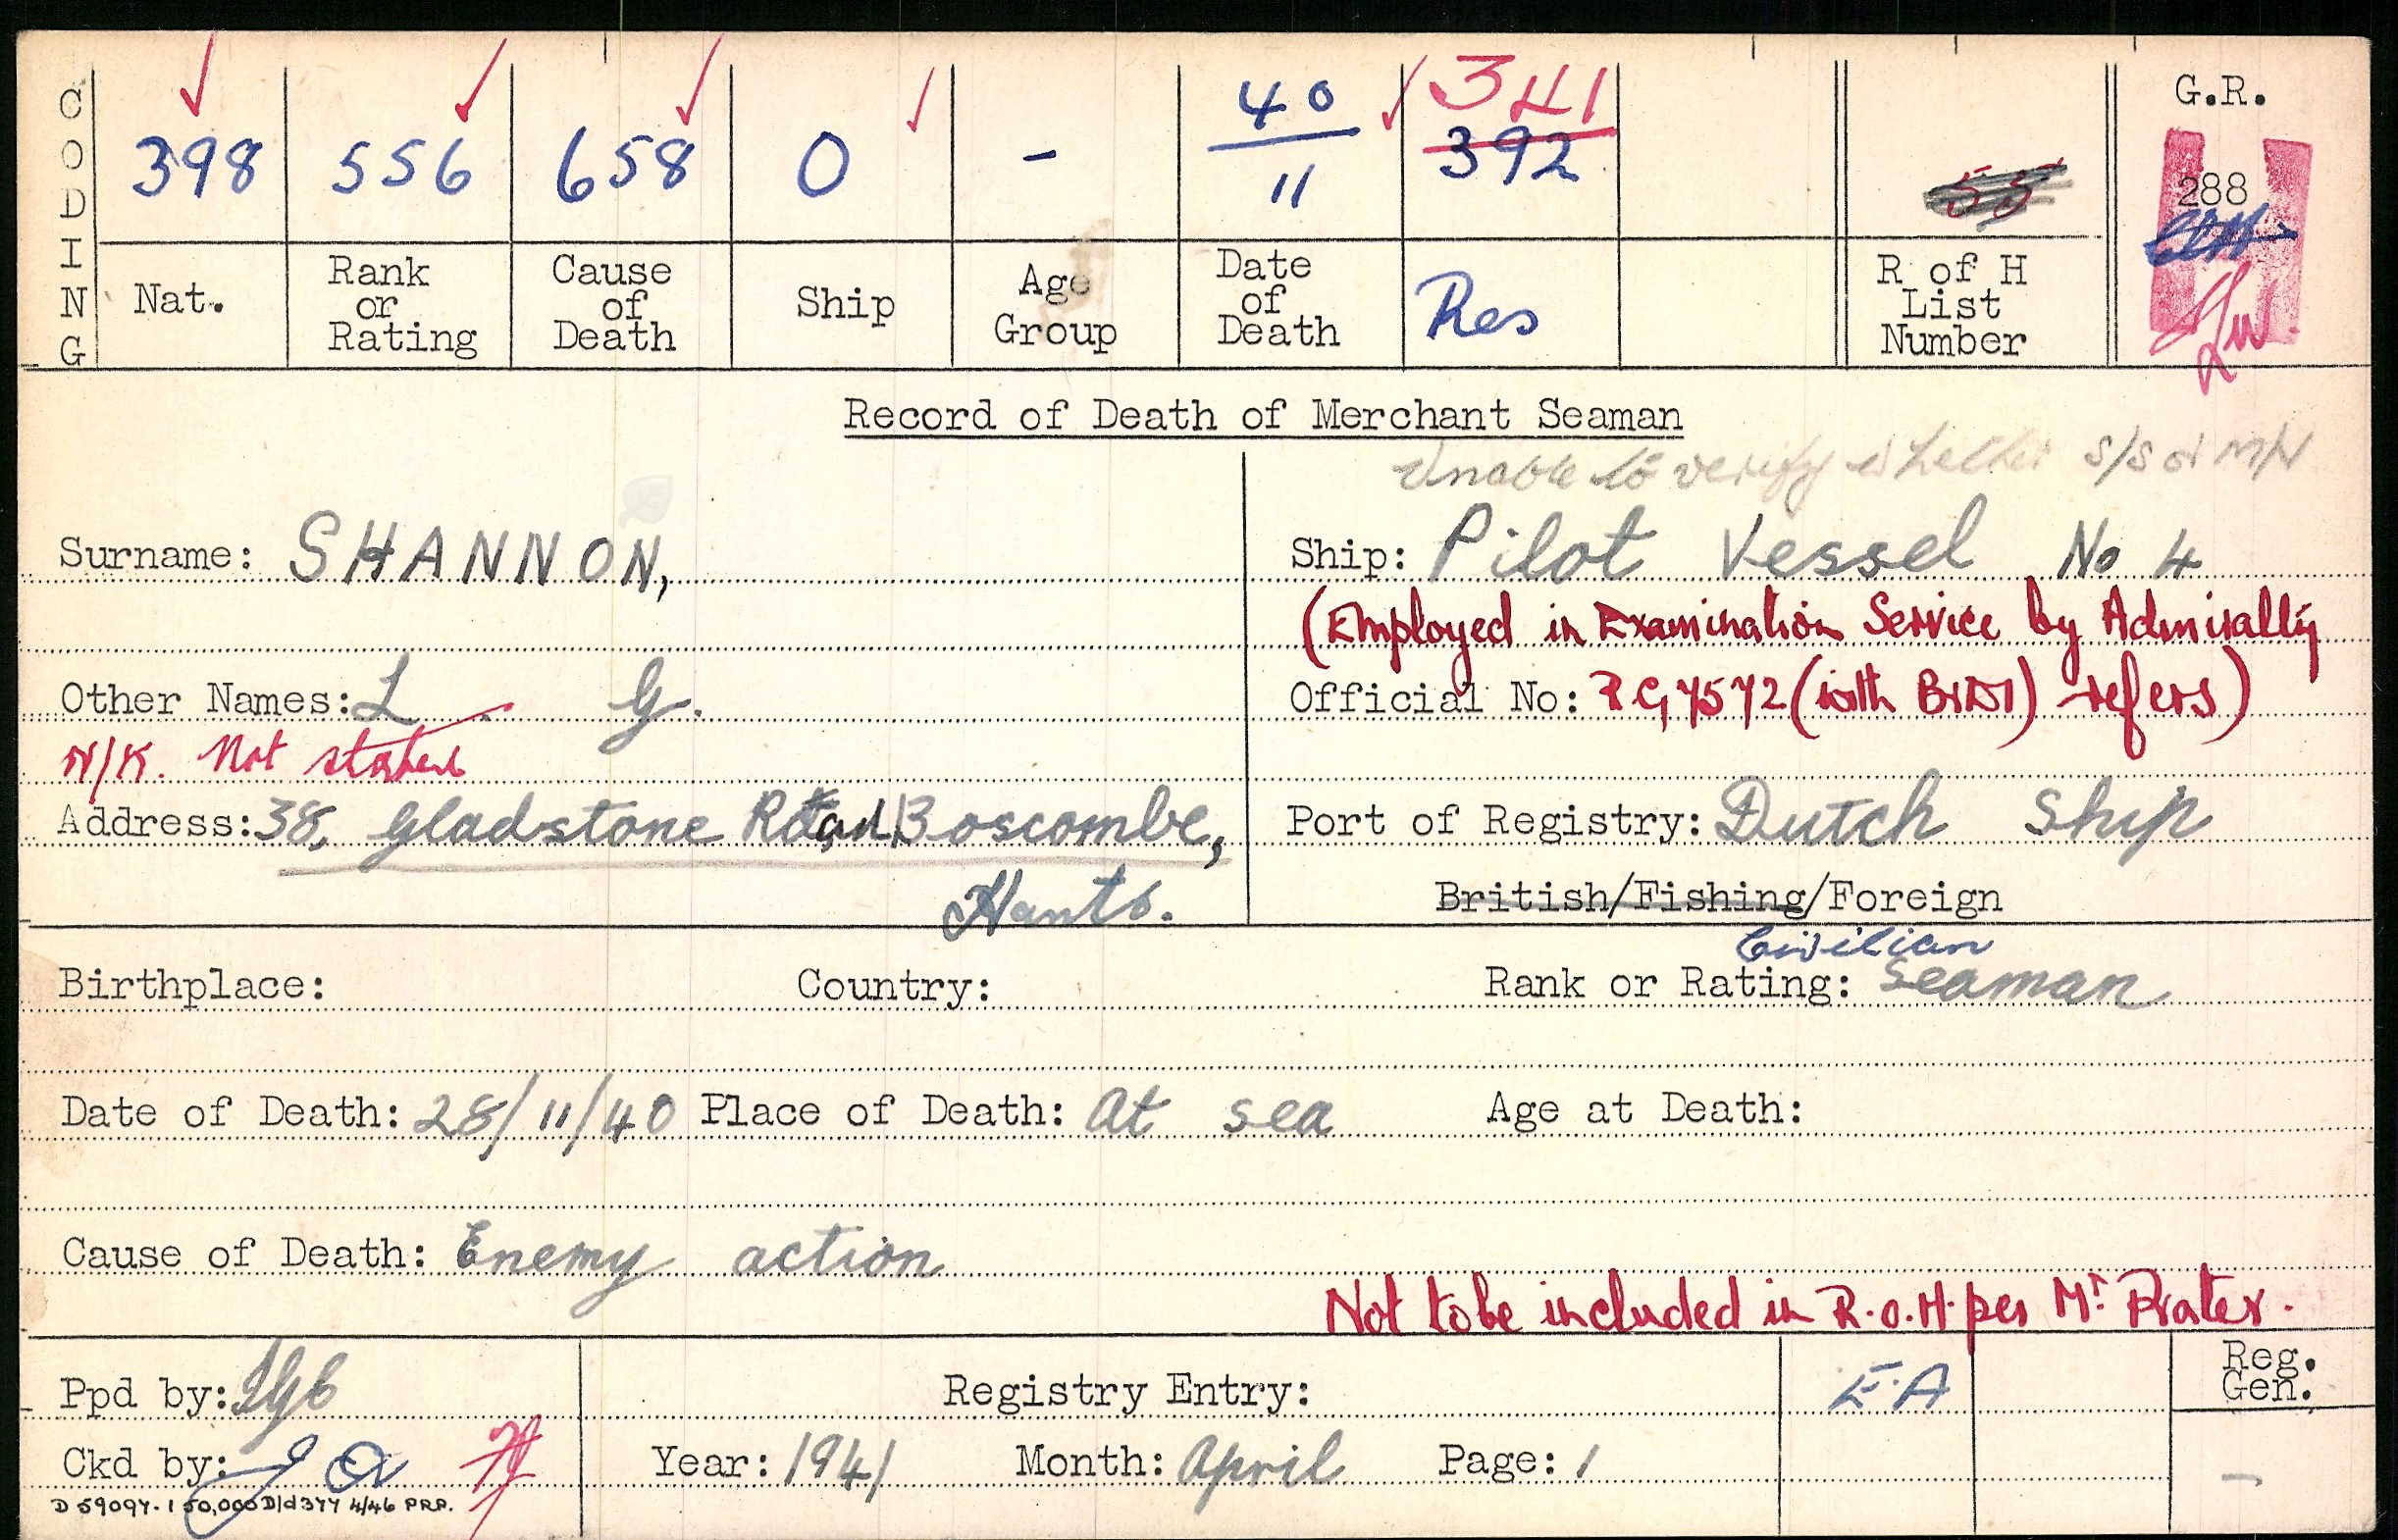 CODING
398 556 658 0 - 40/11 341 392 55 G.R. 288
Nat. Rank or Rating Cause of Death Ship Age Group Date of Death Res R of H List Number
Record of Death of Merchant Seaman
Unable to verify whether S/S or M/V
Surname: SHANNON,
Ship: Pilot Vessel No 4
(Employed in Examination Service by Admiralty
Other Names: L. G.
Official No: RG 7572 (with refers)
N/K. Not stated
Address: 38, Gladstone Road Boscombe,
Hants.
Port of Registry: Dutch Ship
British/Fishing/Foreign
Birthplace: Country: Rank or Rating: Civilian Seaman
Date of Death: 28/11/40 Place of Death: At sea Age at Death:
Cause of Death: Enemy action
Not to be included in R.o.H. per Mr. Prater.
Ppd by: Registry Entry: E.A Reg. Gen.
Ckd by: Year: 1941 Month: April Page: 1 -
D 59097. 150,000 D/d 377 4/46 P.R.P.